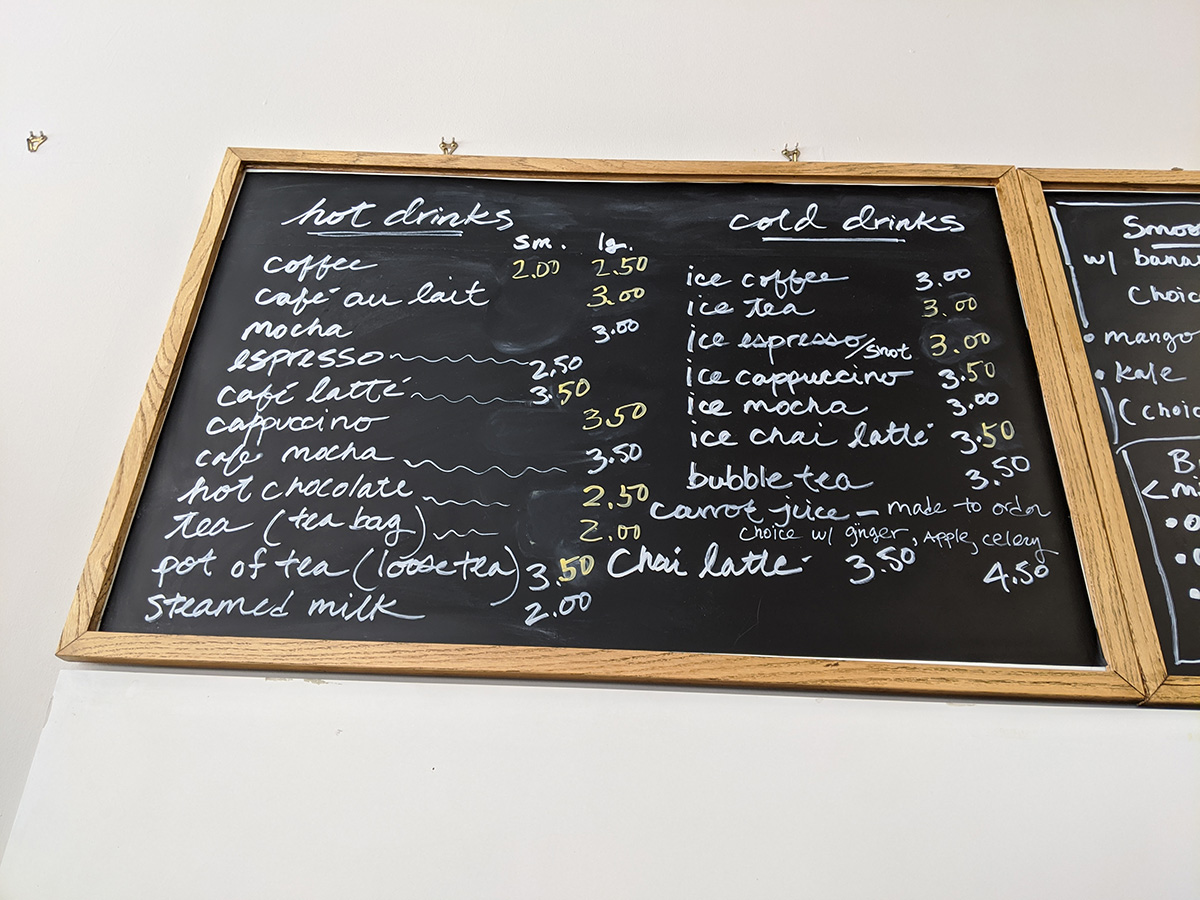 hot drinks
sm. lg.
coffee 2.00 2.50
café au lait 3.00
mocha 3.00
espresso 2.50
café latté 3.50
cappuccino 3.50
cafe mocha 3.50
hot chocolate 2.50
tea (tea bag) 2.00
pot of tea (loose tea) 3.50
steamed milk 2.00
cold drinks
ice coffee 3.00
ice tea 3.00
ice espresso/shot 3.00
ice cappuccino 3.50
ice mocha 3.00
ice chai latté 3.50
bubble tea 3.50
carrot juice – made to order
choice w/ ginger, Apple, celery
4.50
Chai latte 3.50
Smoo
w/ banan
Choic
• mango
• Kale
(choic
B